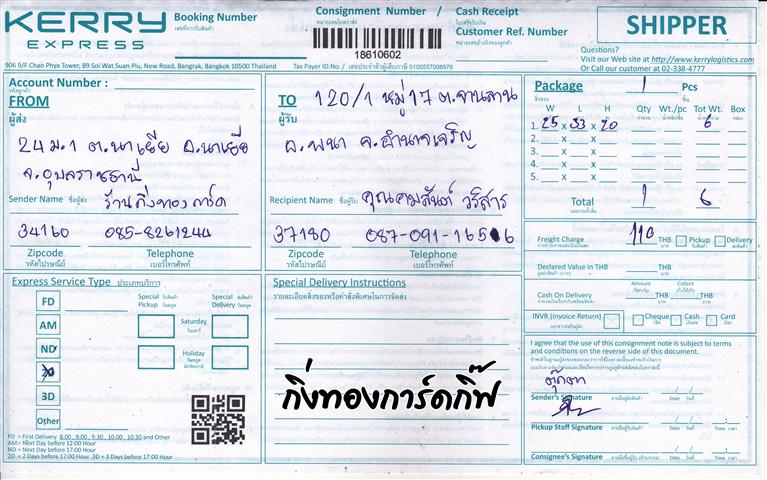 KERRY
EXPRESS
Booking Number
เลขที่การรับสินค้า
Consignment Number /
หมายเลขใบตราส่ง
Cash Receipt
ใบเสร็จรับเงิน
18610602
Customer Ref. Number
หมายเลขอ้างอิงของลูกค้า
SHIPPER
906 9/F Chao Phya Tower, 89 Soi Wat Suan Plu, New Road, Bangrak, Bangkok 10500 Thailand
Tax Payer ID.No. / เลขประจำตัวผู้เสียภาษี 0105557008978
Questions?
Visit our Web site at http://www.kerrylogistics.com
Or Call our customer at 02-338-4777
Account Number :
รหัสลูกค้า
FROM
ผู้ส่ง
24 ม.1 ต.นาเยีย อ.นาเยีย
จ.อุบลราชธานี
Sender Name ชื่อผู้ส่ง ร้านกิ่งทองการ์ด
34160 085-8261244
Zipcode Telephone
รหัสไปรษณีย์ เบอร์โทรศัพท์
TO
ผู้รับ
120/1 หมู่ 17 ต.จานลาน
อ.พนา จ.อำนาจเจริญ
Recipient Name ชื่อผู้รับ คุณคมสันต์ วริสาร
37180 087-091-1656
Zipcode Telephone
รหัสไปรษณีย์ เบอร์โทรศัพท์
Package 1 Pcs
สิ่งของ ชิ้น
W L H Qty Wt./pc Tot Wt. Box
1. 25 x 33 x 20 6
2. x x
3. x x
4. x x
5. x x
Total 1 6
Freight Charge 110 THB Pickup Delivery
Declared Value in THB THB
Cash On Delivery Amount THB Collect THB
INVR (Invoice Return) Cheque Cash Card
Express Service Type ประเภทบริการ
FD
AM
ND
2D
3D
Other
Special Pickup รับสินค้าวันหยุด
Special Delivery ส่งสินค้าวันหยุด
Saturday
วันเสาร์
Holiday
วันหยุดนักขัตฤกษ์
FD = First Delivery 8.00 , 9.00 , 9.30 , 10.00 , 10.30 and Other
AM = Next Day before 12:00 Hour
ND = Next Day before 17:00 Hour
2D = 2 Days before 17:00 Hour 3D = 3 Days before 17:00 Hour
Special Delivery Instructions
รายละเอียดสิ่งของหรือคำสั่งพิเศษในการจัดส่ง
กิ่งทองการ์ดกิ๊ฟ
I agree that the use of this consignment note is subject to terms
and conditions on the reverse side of this document.
ตุ๊กตา
Sender's Signature ลายมือชื่อผู้ส่งสินค้า Date วันที่
Pickup Staff Signature ลายมือชื่อผู้รับสินค้า Date วันที่ Time เวลา
Consignee's Signature ลายมือชื่อผู้รับ Date วันที่ Time เวลา